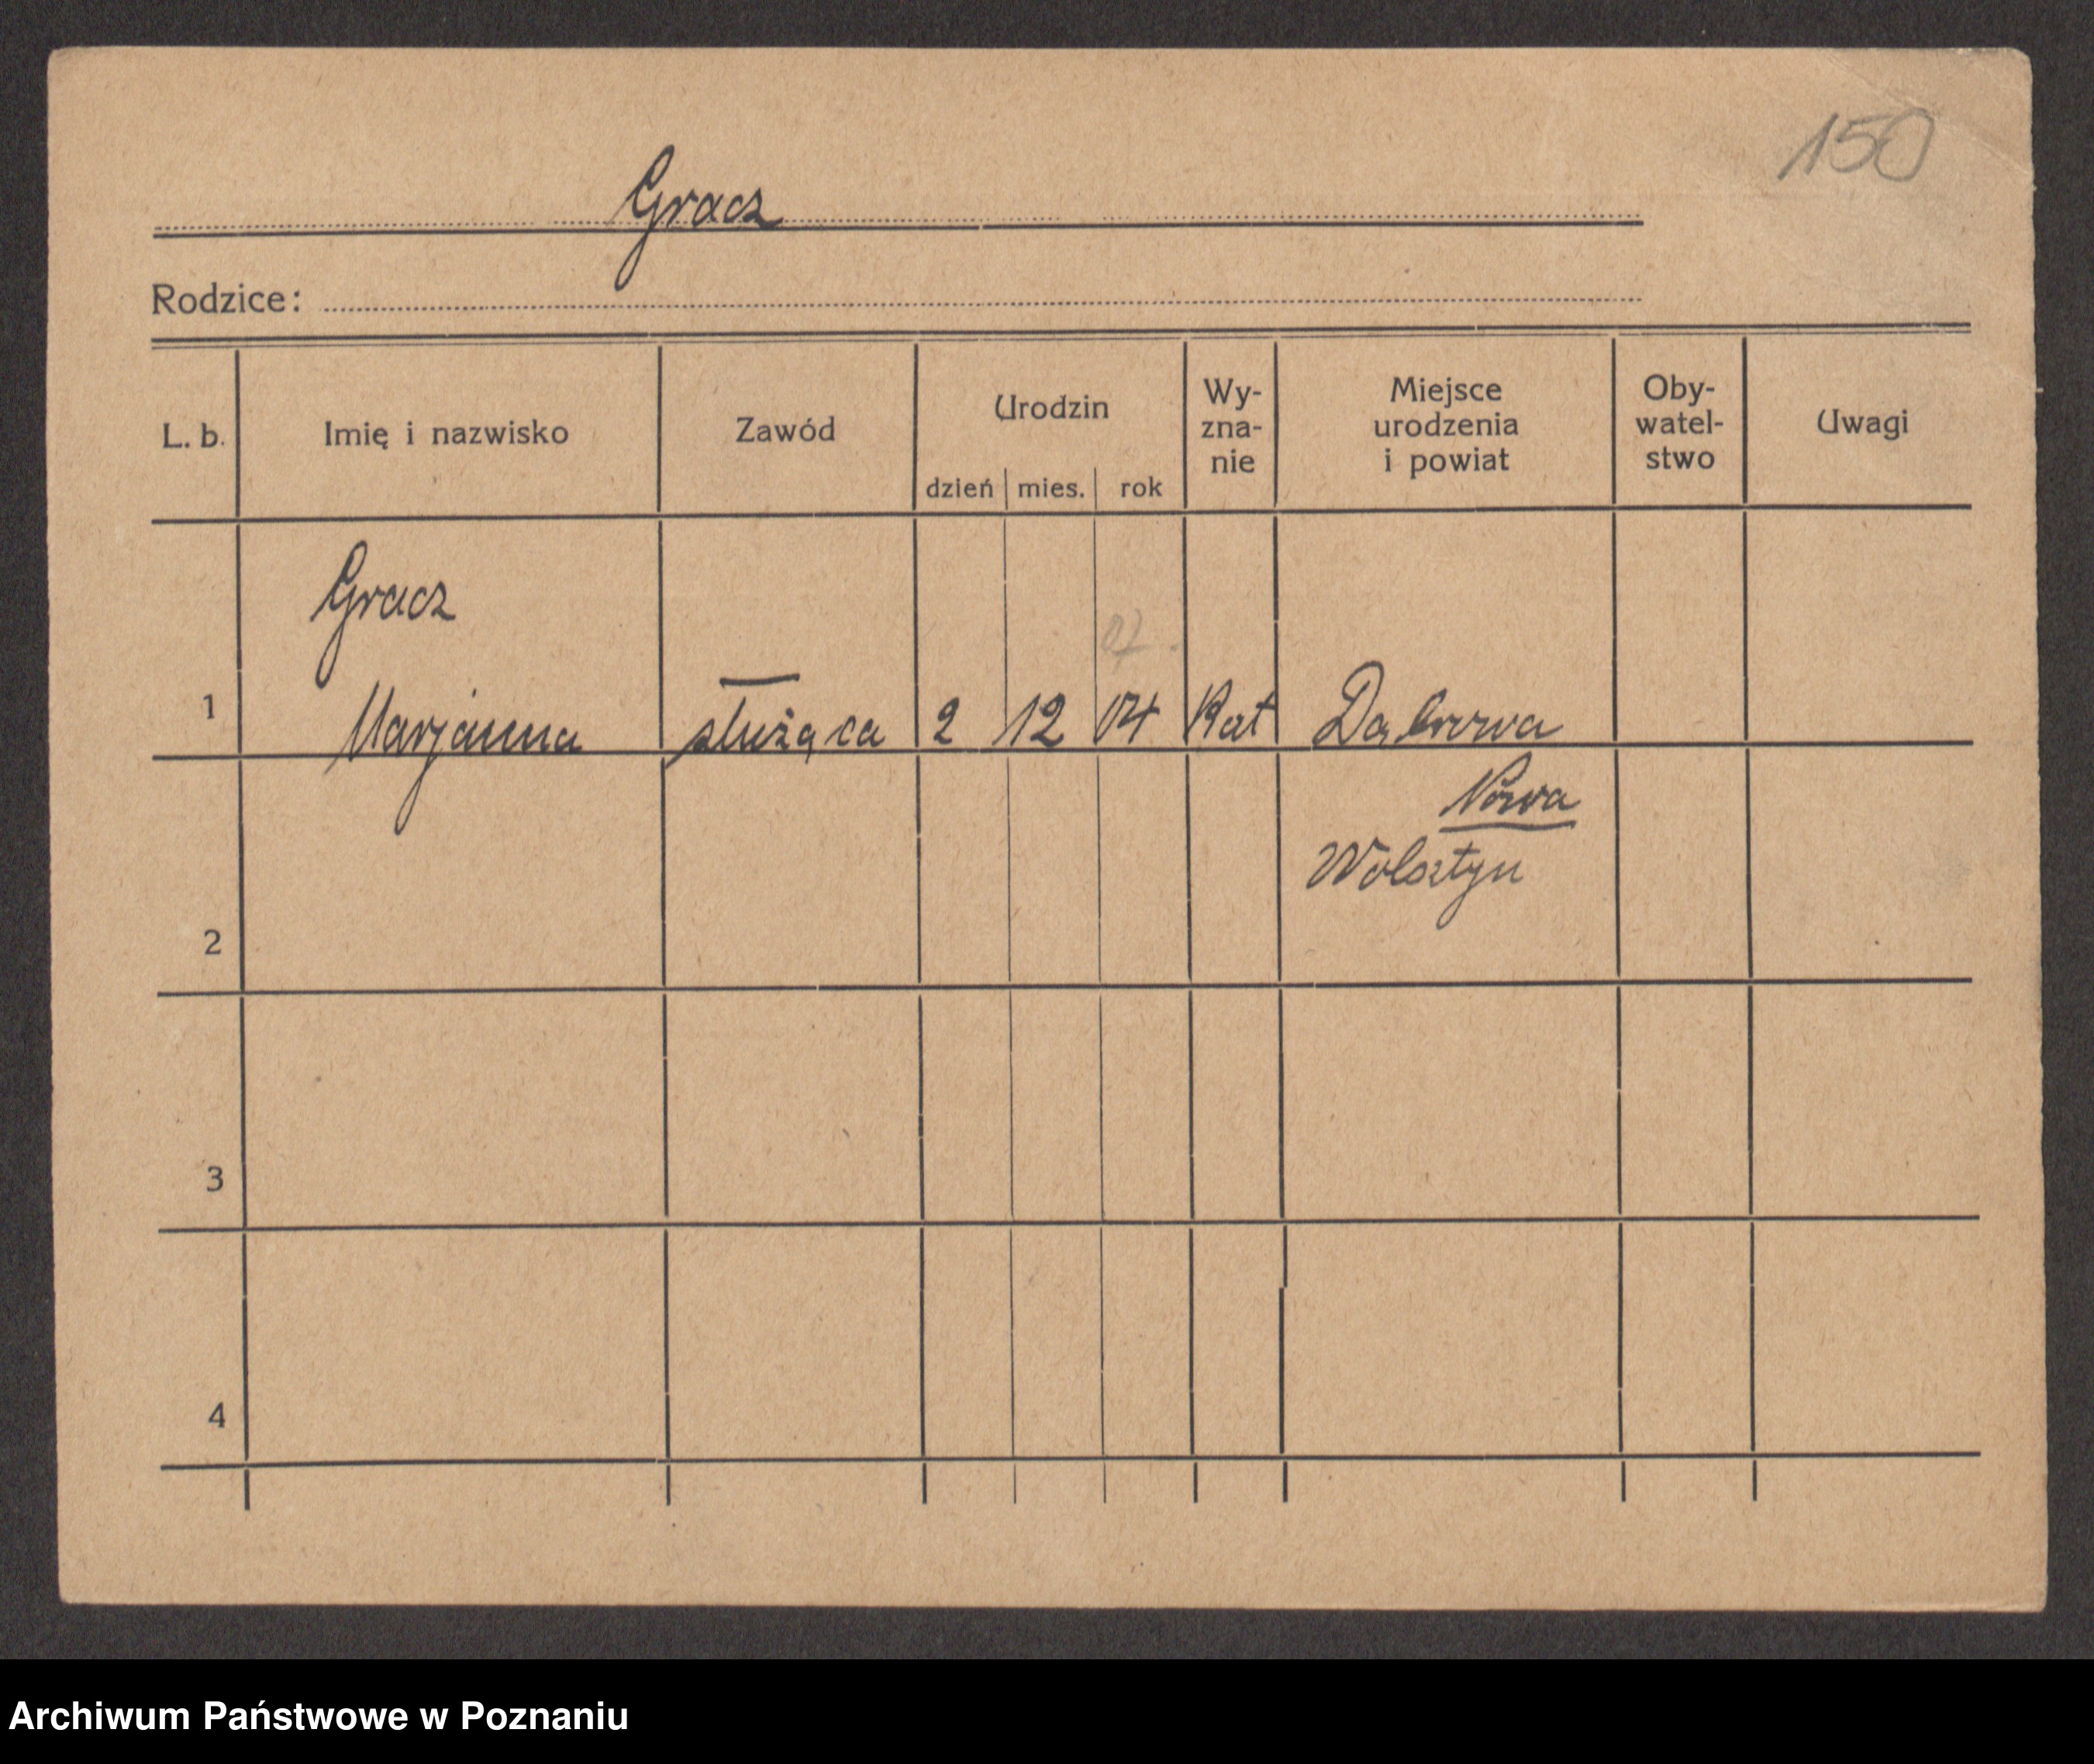 150
Gracz
Rodzice:
L. b. Imię i nazwisko Zawód Urodzin dzień mies. rok Wy-zna-nie Miejsce urodzenia i powiat Oby-watel-stwo Uwagi
Gracz
07
1 Marjanna służąca 2 12 04 Kat Dąbrowa
Nowa
Wolsztyn
2
3
4
Archiwum Państwowe w Poznaniu